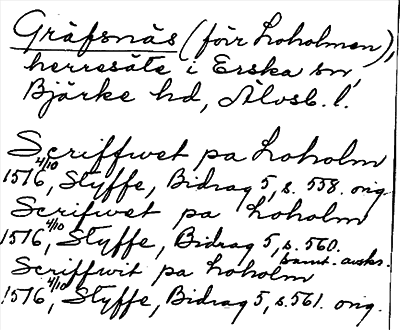 Gräfsnäs (förr Loholmen),
herresäte i Erska sn,
Bjärke hd, Älvsb. l.
Scriffwet pa Loholm
4/10
1516, Styffe, Bidrag 5, s. 558. orig.
Scrifwet pa Loholm
4/10
1516, Styffe, Bidrag 5, s. 560.
samt. avskr.
Scriffwit pa Loholm
4/10
1516, Styffe, Bidrag 5, s. 561. orig.